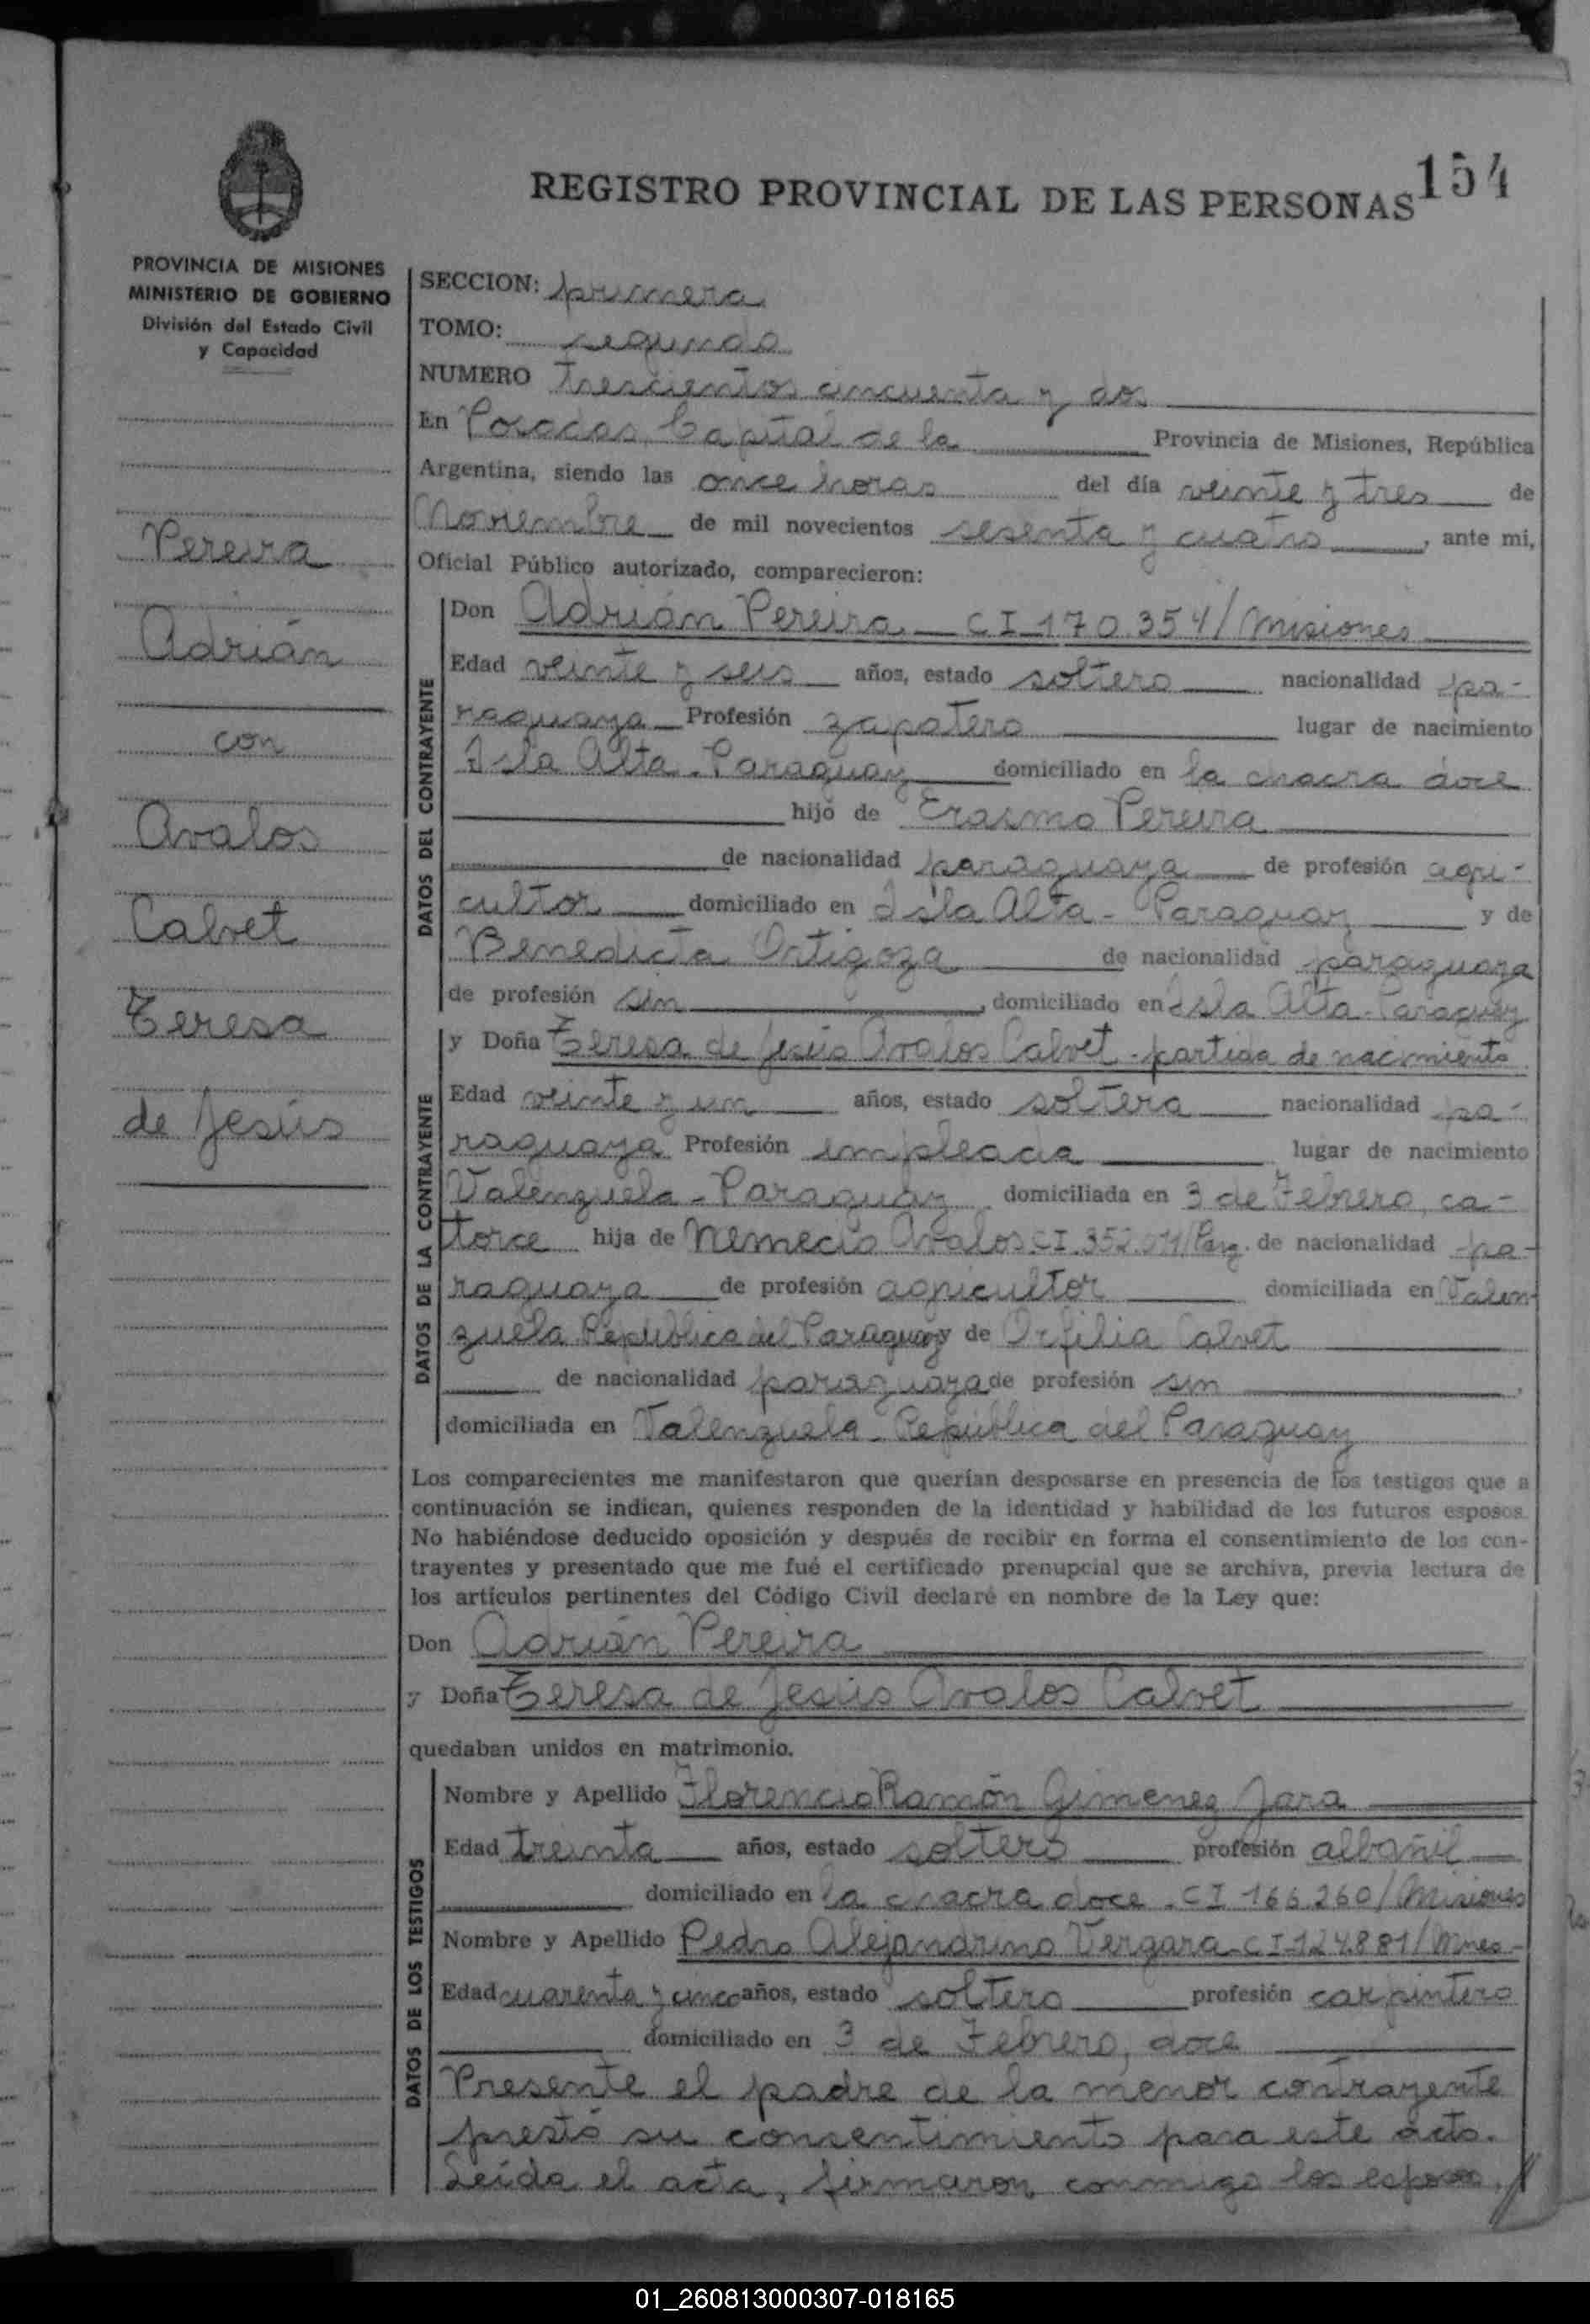 REGISTRO PROVINCIAL DE LAS PERSONAS 154
PROVINCIA DE MISIONES
MINISTERIO DE GOBIERNO
División del Estado Civil
y Capacidad
Pereira
Adrián
con
Avalos
Calvet
Teresa
de Jesús
SECCION: primera
TOMO: segundo
NUMERO Trescientos cincuenta y dos
En Posadas, Capital de la Provincia de Misiones, República
Argentina, siendo las once horas del día veinte y tres de
Noviembre de mil novecientos sesenta y cuatro, ante mi,
Oficial Público autorizado, comparecieron:
DATOS DEL CONTRAYENTE
Don Adrián Pereira - CI 170.354/Misiones
Edad veinte y seis años, estado soltero nacionalidad pa-
raguaya Profesión zapatero lugar de nacimiento
Isla Alta - Paraguay domiciliado en la chacra doce
hijo de Erasmo Pereira
de nacionalidad paraguaya de profesión agri-
cultor domiciliado en Isla Alta - Paraguay y de
Benedicta Ortigoza de nacionalidad paraguaya
de profesión sin, domiciliado en Isla Alta - Paraguay
DATOS DE LA CONTRAYENTE
y Doña Teresa de Jesús Avalos Calvet - partida de nacimiento
Edad veinte y un años, estado soltera nacionalidad pa-
raguaya Profesión empleada lugar de nacimiento
Valenzuela - Paraguay domiciliada en 3 de Febrero, ca-
torce hija de Nemecio Avalos CI. /Parg. de nacionalidad pa-
raguaya de profesión agricultor domiciliada en Valen-
zuela República del Paraguay y de Orfilia Calvet
de nacionalidad paraguaya de profesión sin,
domiciliada en Valenzuela - República del Paraguay
Los comparecientes me manifestaron que querían desposarse en presencia de los testigos que a
continuación se indican, quienes responden de la identidad y habilidad de los futuros esposos.
No habiéndose deducido oposición y después de recibir en forma el consentimiento de los con-
trayentes y presentado que me fué el certificado prenupcial que se archiva, previa lectura de
los artículos pertinentes del Código Civil declaré en nombre de la Ley que:
Don Adrián Pereira
y Doña Teresa de Jesús Avalos Calvet
quedaban unidos en matrimonio.
DATOS DE LOS TESTIGOS
Nombre y Apellido Florencio Ramón Gimenez Jara
Edad treinta años, estado soltero profesión albañil
domiciliado en la chacra doce. CI 166.260/Misiones
Nombre y Apellido Pedro Alejandrino Vergara - CI 124.881/Mnes-
Edad cuarenta y cinco años, estado soltero profesión carpintero
domiciliado en 3 de Febrero, doce
Presente el padre de la menor contrayente
prestó su consentimiento para este acto.
Leída el acta, firmaron conmigo los esposos,
01_260813000307-018165